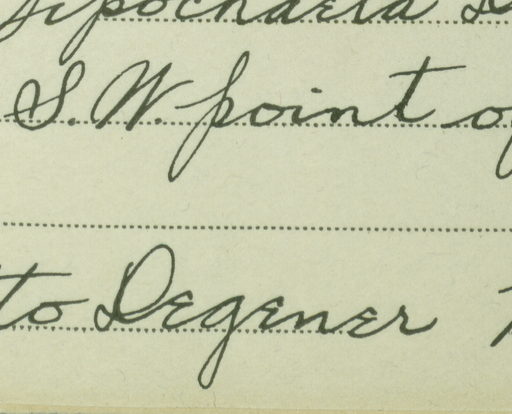 Lipochaeta
S.W. point of
to Degener